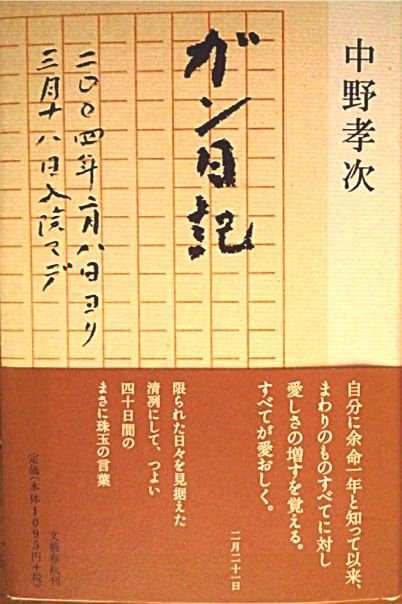 中野孝次
ガン日記
二〇〇四年二月八日ヨリ
三月十八日入院マデ
自分に余命一年と知って以来、
まわりのものすべてに対し
愛しさの増すを覚える。
すべてが愛おしく。
二月二十一日
限られた日々を見据えた
清冽にして、つよい
四十日間の
まさに珠玉の言葉
文藝春秋刊
定価(本体1095円+税)